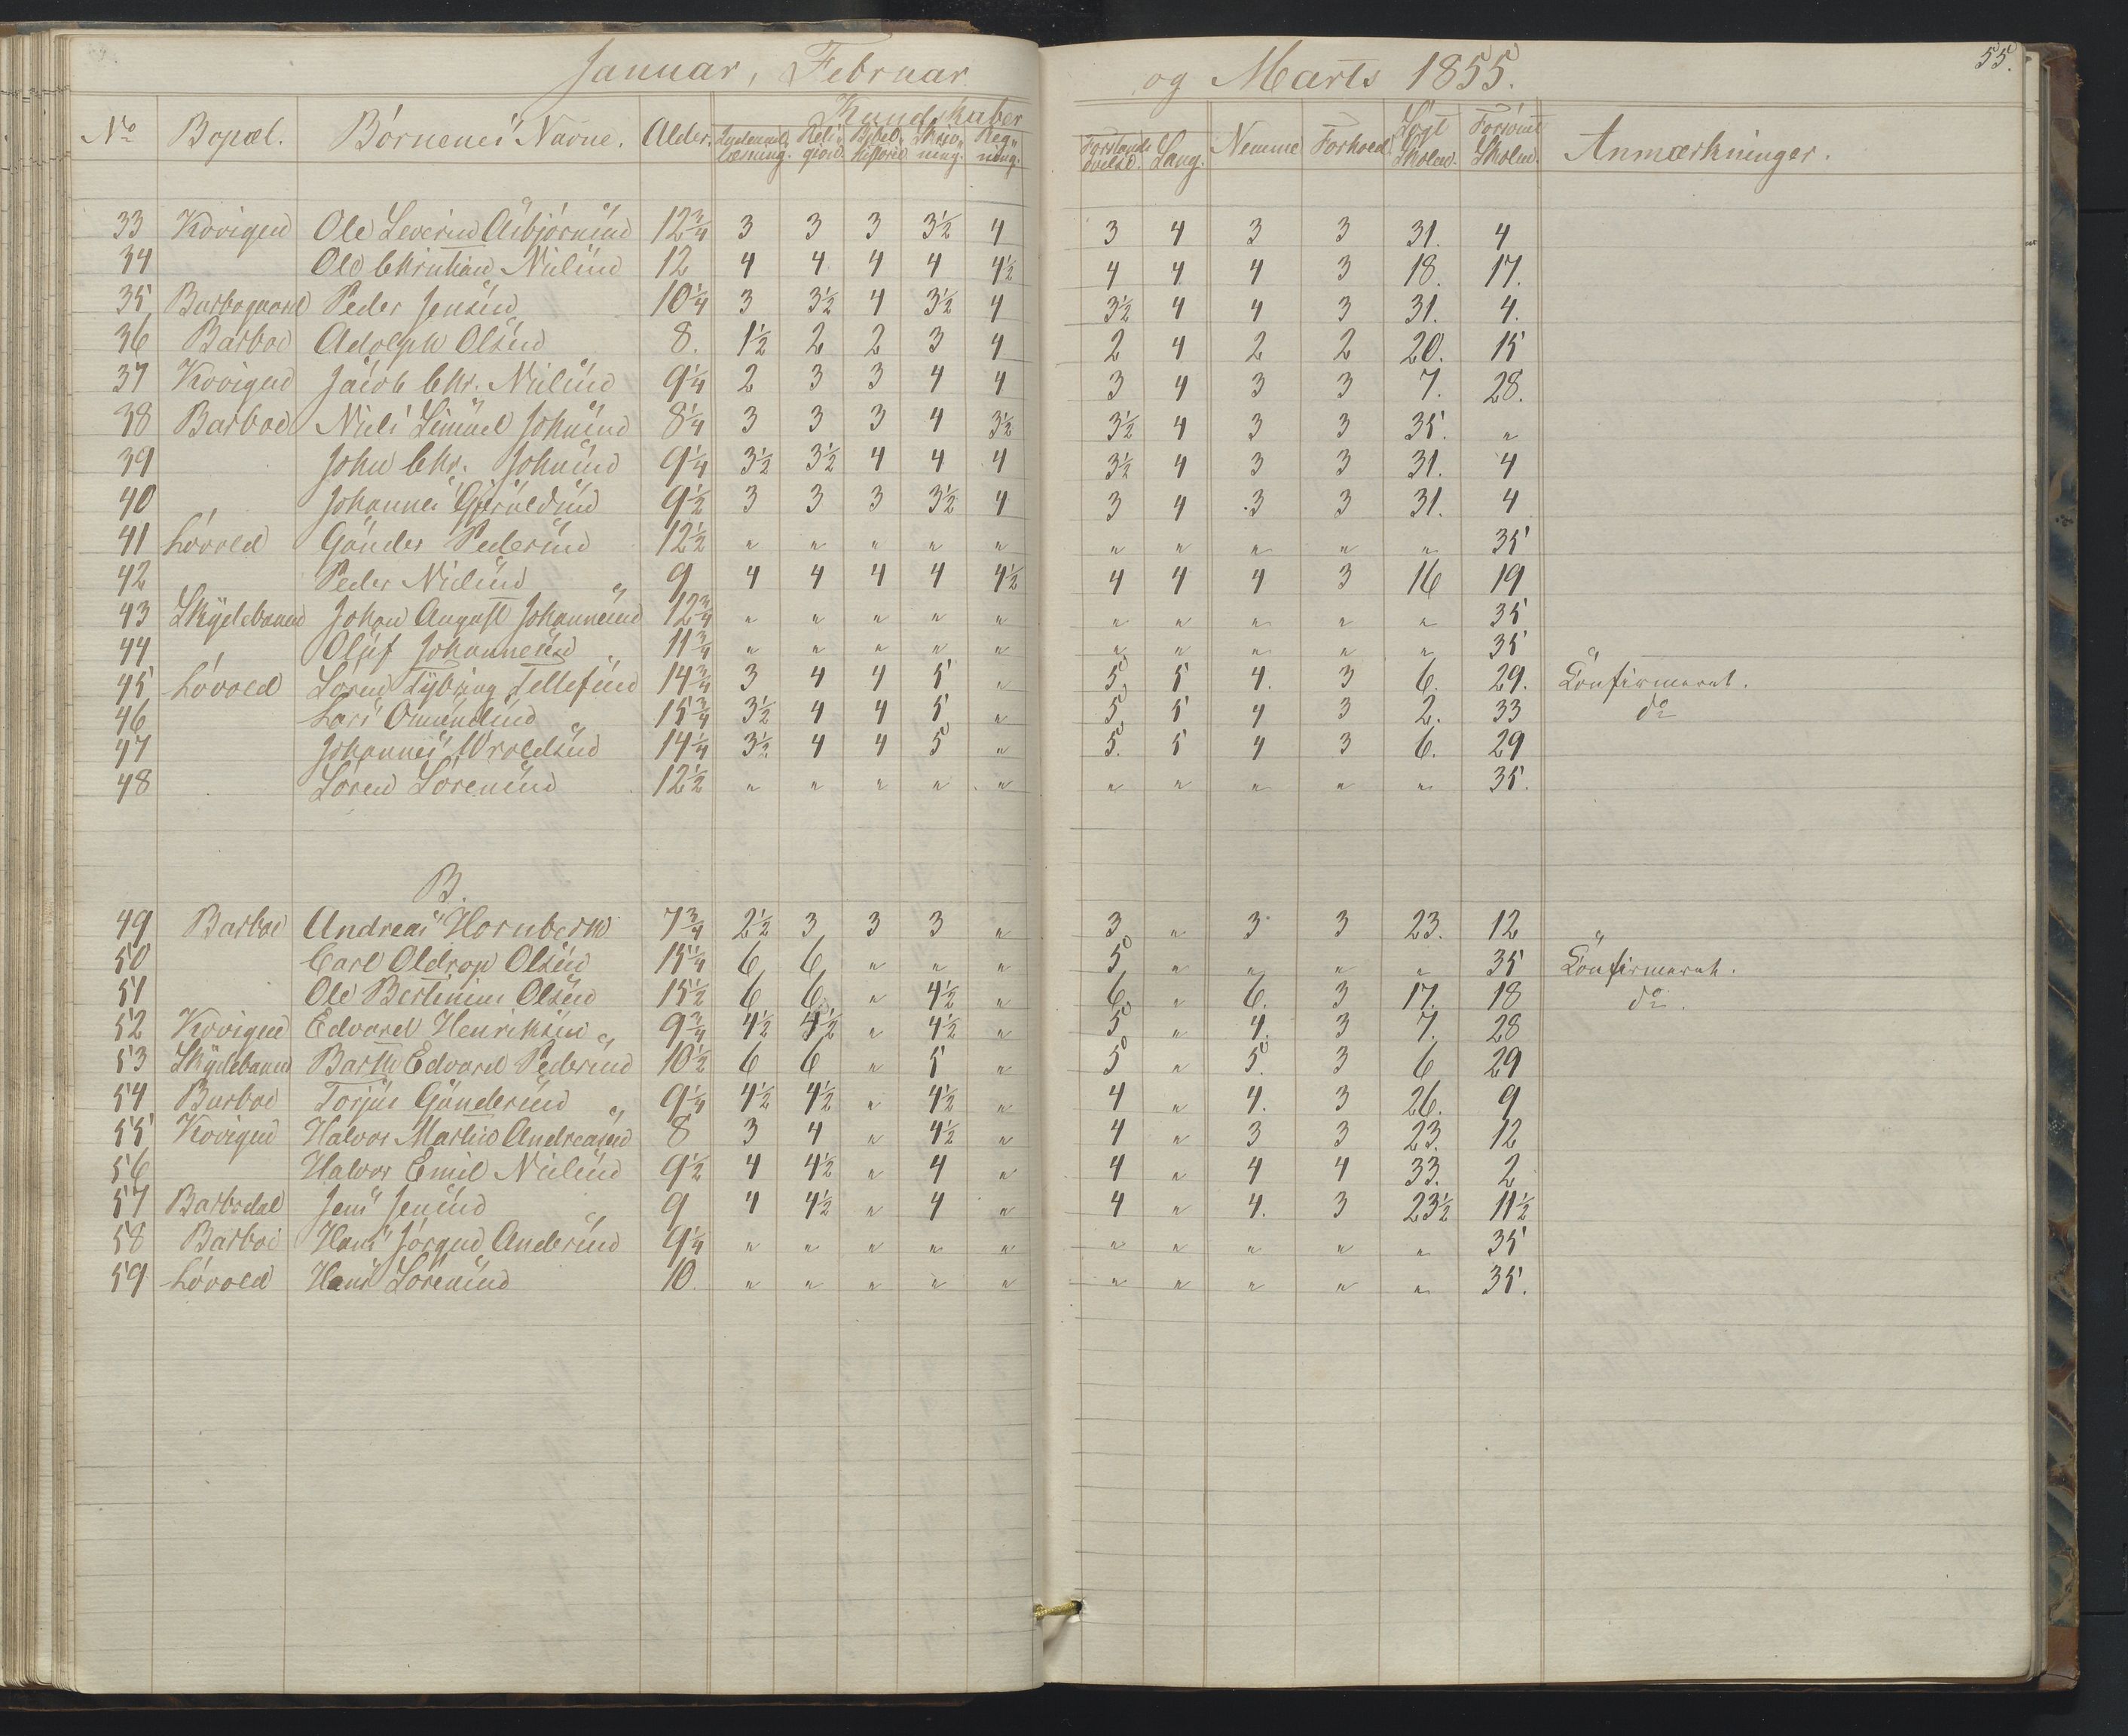 Januar, Februar og Marts 1855. 55.
No Bopæl. Børnenes Navne. Alder. Kundskaber Nemme Forhold Søgt Skolen. Forsømt Skolen. Anmærkninger.
Indenadslæsning. Religion. Bibelhistorie. Skrivning. Regning. Forstandsøvelse. Sang.
33 Kovigen Ole Severin Asbjørnsen 12 3/4 3 3 3 3 1/2 4 3 4 3 3 31. 4
34 Ole Christian Nielsen 12 4 4 4 4 4 1/2 4 4 4 3 18. 17.
35 Barbogaard Peder Jensen 10 1/4 3 3 1/2 4 3 1/2 4 3 1/2 4 4 3 31. 4.
36 Barboe Adolph Olsen 8. 1 1/2 2 2 3 4 2 4 2 2 20. 15
37 Kovigen Jacob Chr. Nielsen 9 1/4 2 3 3 4 4 3 4 3 3 7. 28.
38 Barboe Niels Simuel Johnsen 8 1/4 3 3 3 4 3 1/2 3 1/2 4 3 3 35. "
39 John Chr. Johnsen 9 1/4 3 1/2 3 1/2 4 4 4 3 1/2 4 3 3 31. 4
40 Johannes 9 1/2 3 3 3 3 1/2 4 3 4 3 3 31. 4
41 Løvold Gunder Pedersen 12 1/2 " " " " " " " " " " 35
42 Peder Nielsen 9 4 4 4 4 4 1/2 4 4 4 3 16 19
43 Skydebanen Johan August Johannesen 12 3/4 " " " " " " " " " " 35
44 Oluf Johannesen 11 3/4 " " " " " " " " " " 35
45 Løvold Søren Tybring Tellefsen 14 3/4 3 4 4 5 " 5. 5 4. 3 6. 29. Confirmeret.
46 Lars Omundsen 15 3/4 3 1/2 4 4 5 " 5 5 4 3 2. 33 do
47 Johannes Wroldsen 14 1/4 3 1/2 4 4 5 " 5. 5 4 3 6. 29
48 Søren Sørensen 12 1/2 " " " " " " " " " " 35.
B.
49 Barboe Andreas Hornbech 7 3/4 2 1/2 3 3 3 " 3 " 3 3 23. 12
50 Carl Oldrop Olsen 15 1/4 6 6 " " " 5 " " " " 35 Confirmeret.
51 Ole Bertinius Olsen 15 1/2 6 6 " 4 1/2 " 6. " 6. 3 17. 18 do.
52 Kovigen Edvard Henriksen 9 3/4 4 1/2 4 1/2 " 4 1/2 " 5 " 4. 3 7. 28
53 Skydebanen Barth Edvard Pedersen 10 1/2 6 6 " 5 " 5 " 5. 3 6 29
54 Barboe Torjus Gundersen 9 1/4 4 1/2 4 1/2 " 4 1/2 " 4 " 4. 3 26. 9
55 Kovigen Halvor Martin Andreasen 8 3 4 " 4 1/2 " 4 " 3 3 23. 12
56 Halvor Emil Nielsen 9 1/2 4 4 1/2 " 4 " 4 " 4 4 33. 2
57 Barbodal Jens Jensen 9 4 4 1/2 " 4 " 4 " 4. 3 23 1/2 11 1/2
58 Barboe Hans Jørgen Andersen 9 1/4 " " " " " " " " " " 35
59 Løvold Hans Sørensen 10. " " " " " " " " " " 35.